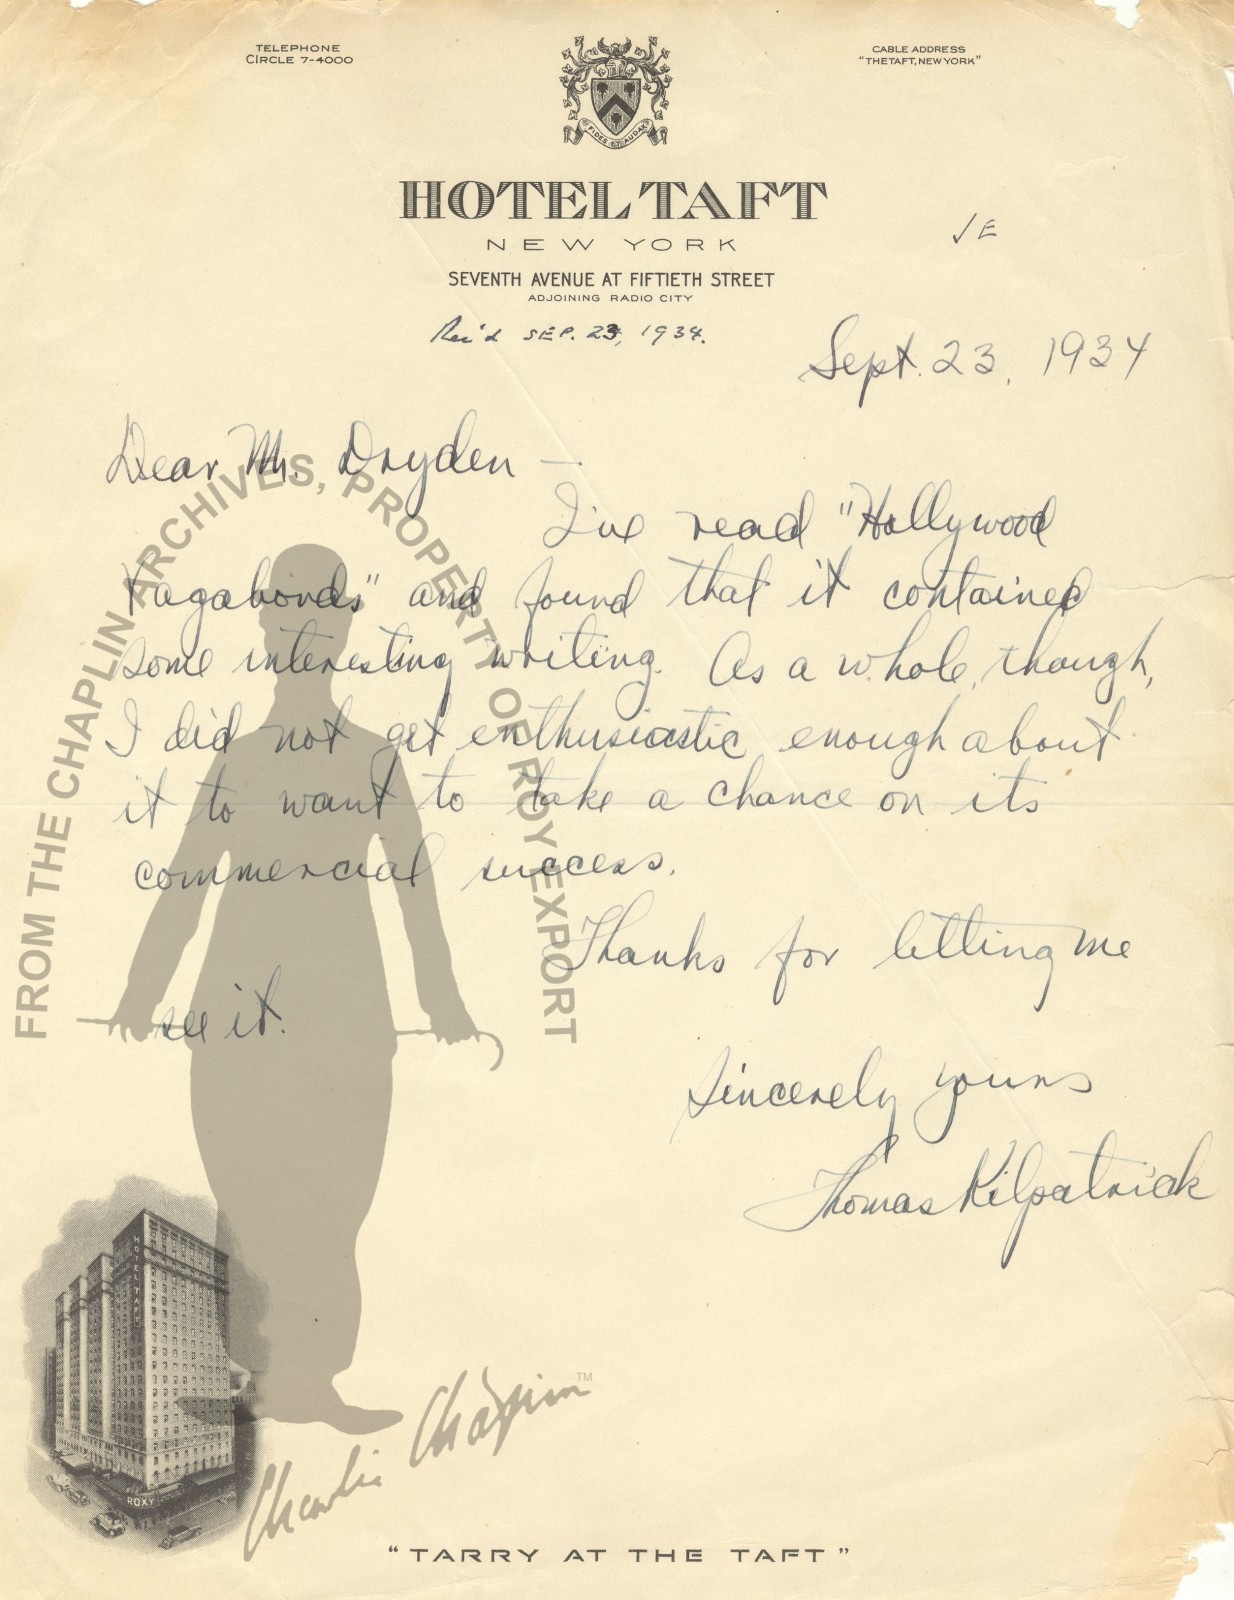 TELEPHONE
CIRCLE 7-4000
CABLE ADDRESS
"THETAFT, NEW YORK"
FIDES ET AUDAX
HOTEL TAFT
NEW YORK
SEVENTH AVENUE AT FIFTIETH STREET
ADJOINING RADIO CITY
✓ E
Rec'd SEP. 23, 1934.
Sept. 23, 1934
Dear Mr. Dryden —
I've read "Hollywood
Vagabonds" and found that it contained
some interesting writing. As a whole, though,
I did not get enthusiastic enough about
it to want to take a chance on its
commercial success.
Thanks for letting me
see it.
Sincerely yours
Thomas Kilpatrick
FROM THE CHAPLIN ARCHIVES, PROPERTY OF ROY EXPORT
HOTEL TAFT
ROXY
Charlie Chaplin™
"TARRY AT THE TAFT"